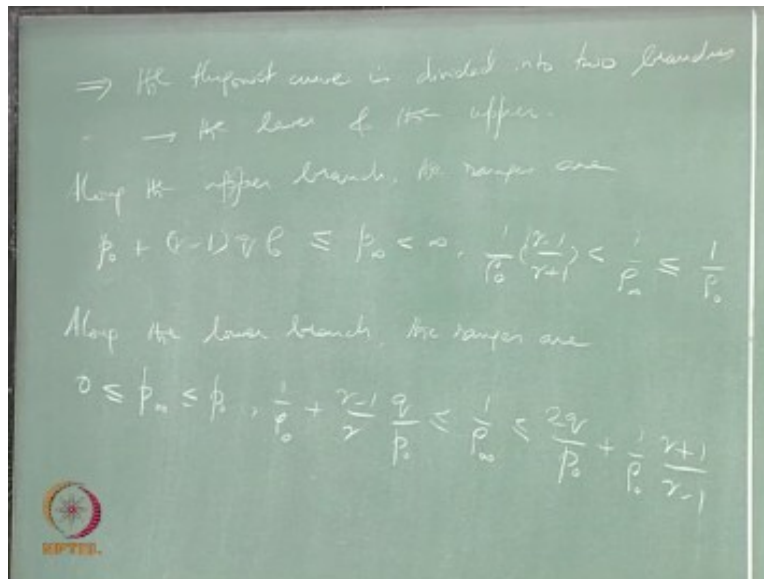 ⇒ the Hugoniot curve is divided into two branches
→ the lower & the upper.
Along the upper branch, the ranges are
p₀ + (γ-1) q ρ ≤ p∞ < ∞, 1/ρ₀ (γ-1/γ+1) < 1/ρ∞ ≤ 1/ρ₀
Along the lower branch, the ranges are
0 ≤ p∞ ≤ p₀, 1/ρ₀ + γ-1/γ q/p₀ ≤ 1/ρ∞ ≤ 2q/p₀ + 1/ρ₀ γ+1/γ-1
NPTEL